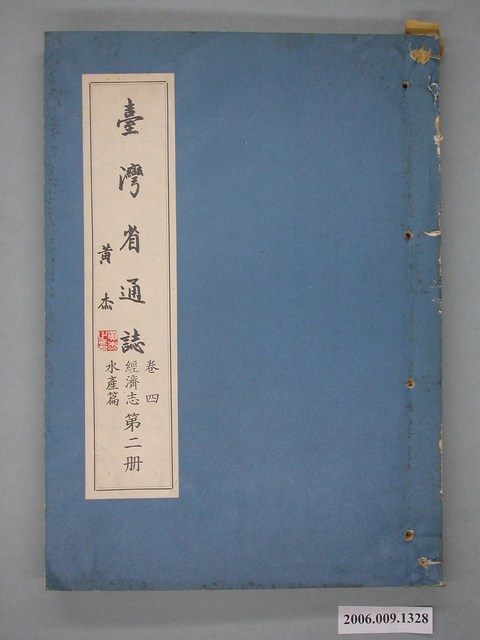 臺灣省通誌
黃杰
卷四
經濟志
水產篇
第二冊
2006.009.1328